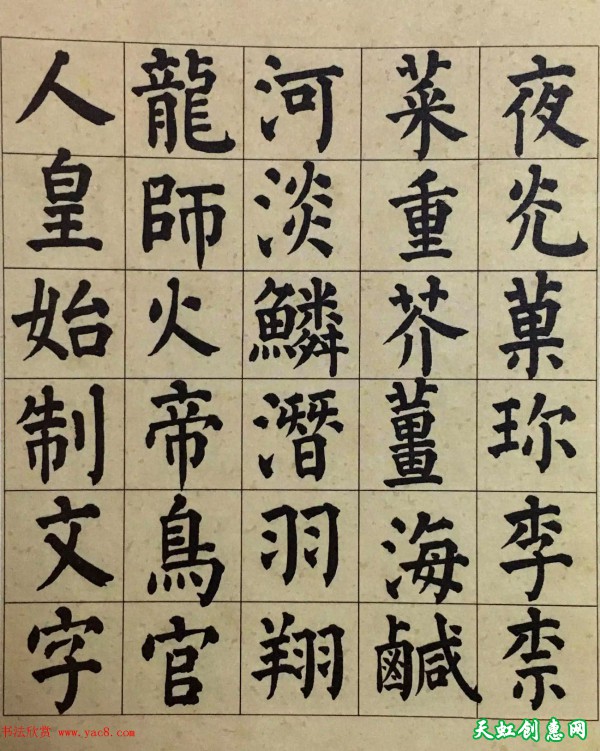 夜光菓珎李柰
菜重芥薑海鹹
河淡鱗潛羽翔
龍師火帝鳥官
人皇始制文字
书法欣赏 www.yac8.com
天虹创惠网